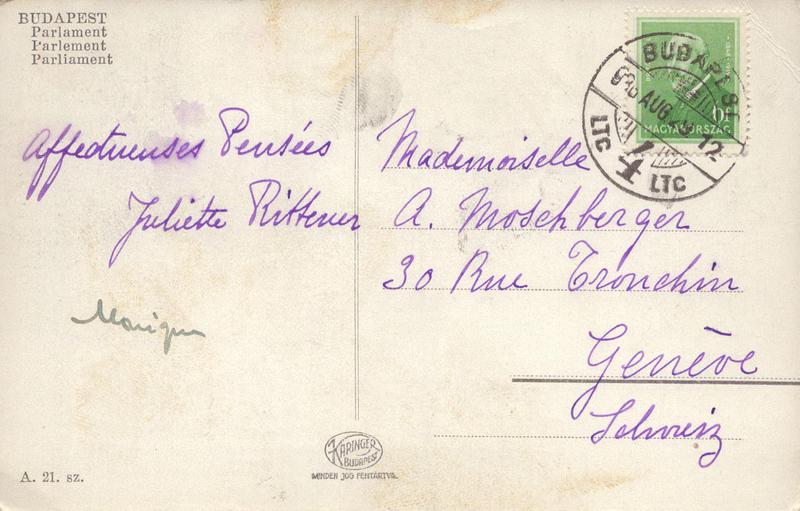 BUDAPEST
Parlament
Parlement
Parliament
Affectueuses Pensées
Juliette Rittener
Monique
Mademoiselle
A. Moschberger
30 Rue Tronchin
Genève
Schweiz
BUDAPEST
AUG
12
LTC 4 LTC
MAGYARORSZÁG
KARINGER
BUDAPEST
MINDEN JOG FENTARTVA.
A. 21. sz.